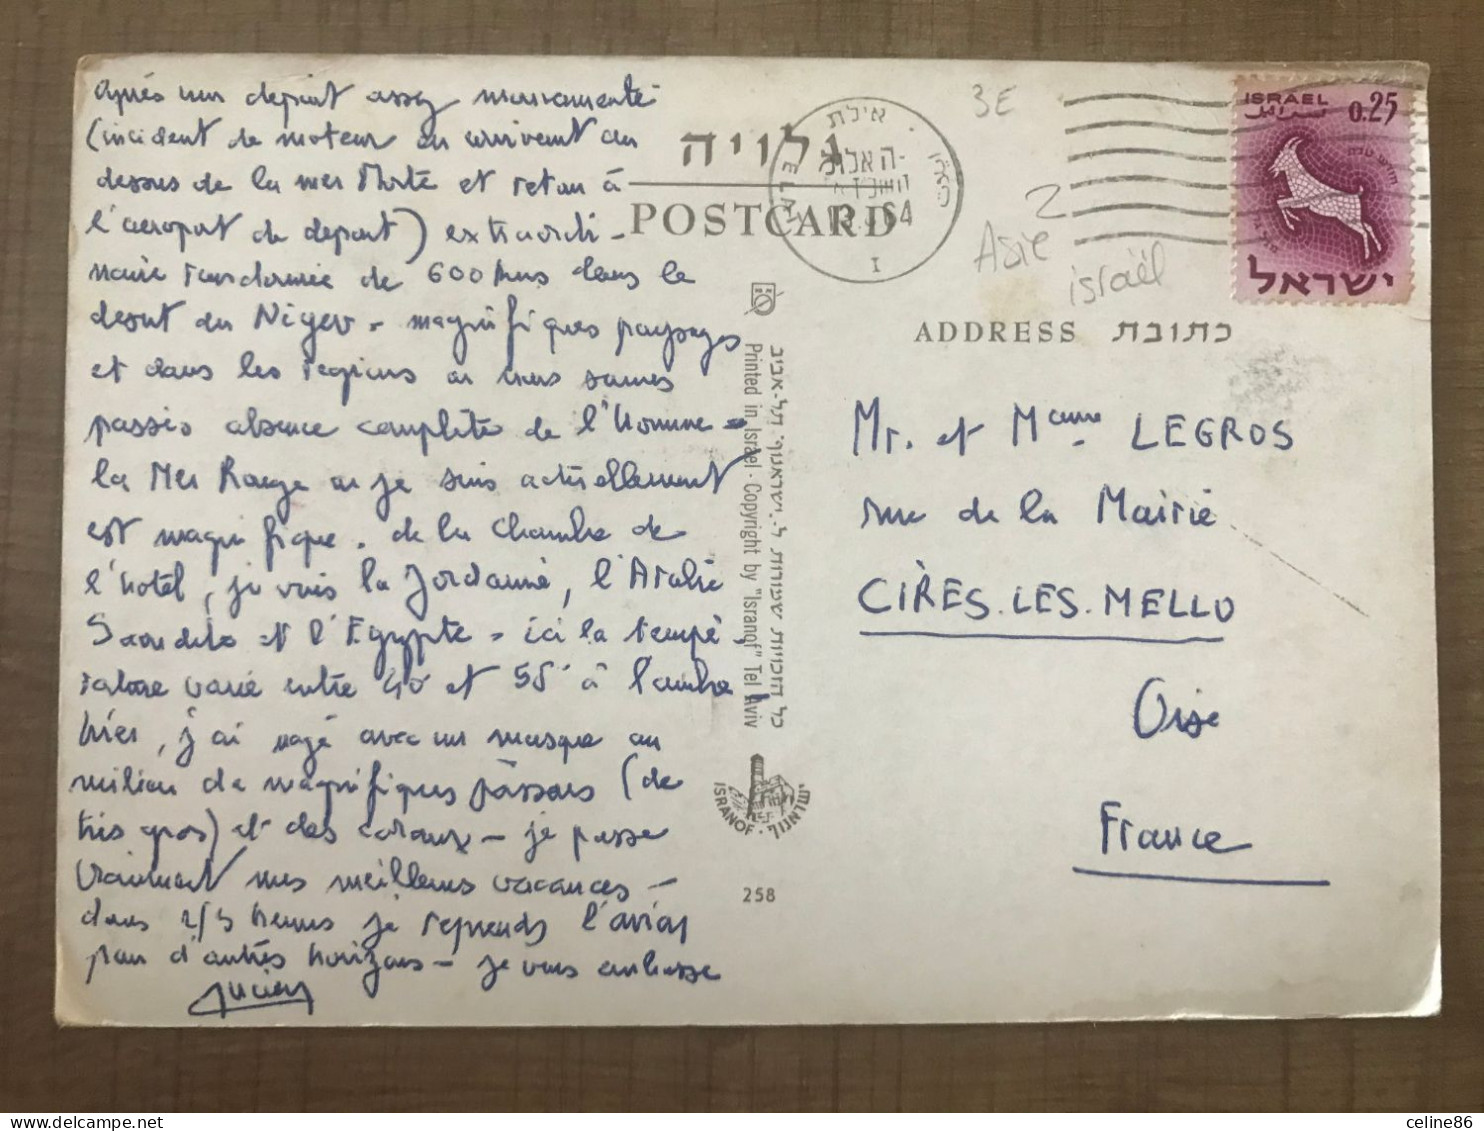 Après un depart assez mouvementé
(incident de moteur en arrivant au
dessus de la mer Morte et retour à
l'aeroport de depart) extraordi-
naire randonnée de 600 kms dans le
desert du Niger - magnifiques paysages
et dans les regions où nous sommes
passés absence complète de l'homme -
la Mer Rouge où je suis actuellement
est magnifique. de la chambre de
l'hotel, je vois la Jordanie, l'Arabie
Saoudite et l'Egypte - ici la tempé-
rature varie entre 40° et 55° à l'ombre
hier, j'ai nagé avec un masque au
milieu de magnifiques poissons (de
très gros) et des coraux - je passe
vraiment mes meilleures vacances -
dans 2/3 heures je reprends l'avion
pour d'autres horizons - je vous embrasse
Lucien
גלויה
POSTCARD
אילת
ELAT
64
I
3E
Asie
israël
2
ISRAEL 0.25
ישראל
ADDRESS כתובת
Mr. et Mame LEGROS
rue de la Mairie
CIRES.LES.MELLO
Oise
France
כל הזכויות שמורות ל"ישראנוף" תל-אביב
Printed in Israel · Copyright by "Isranof" Tel Aviv
ISRANOF · ישראנוף
258
celine86